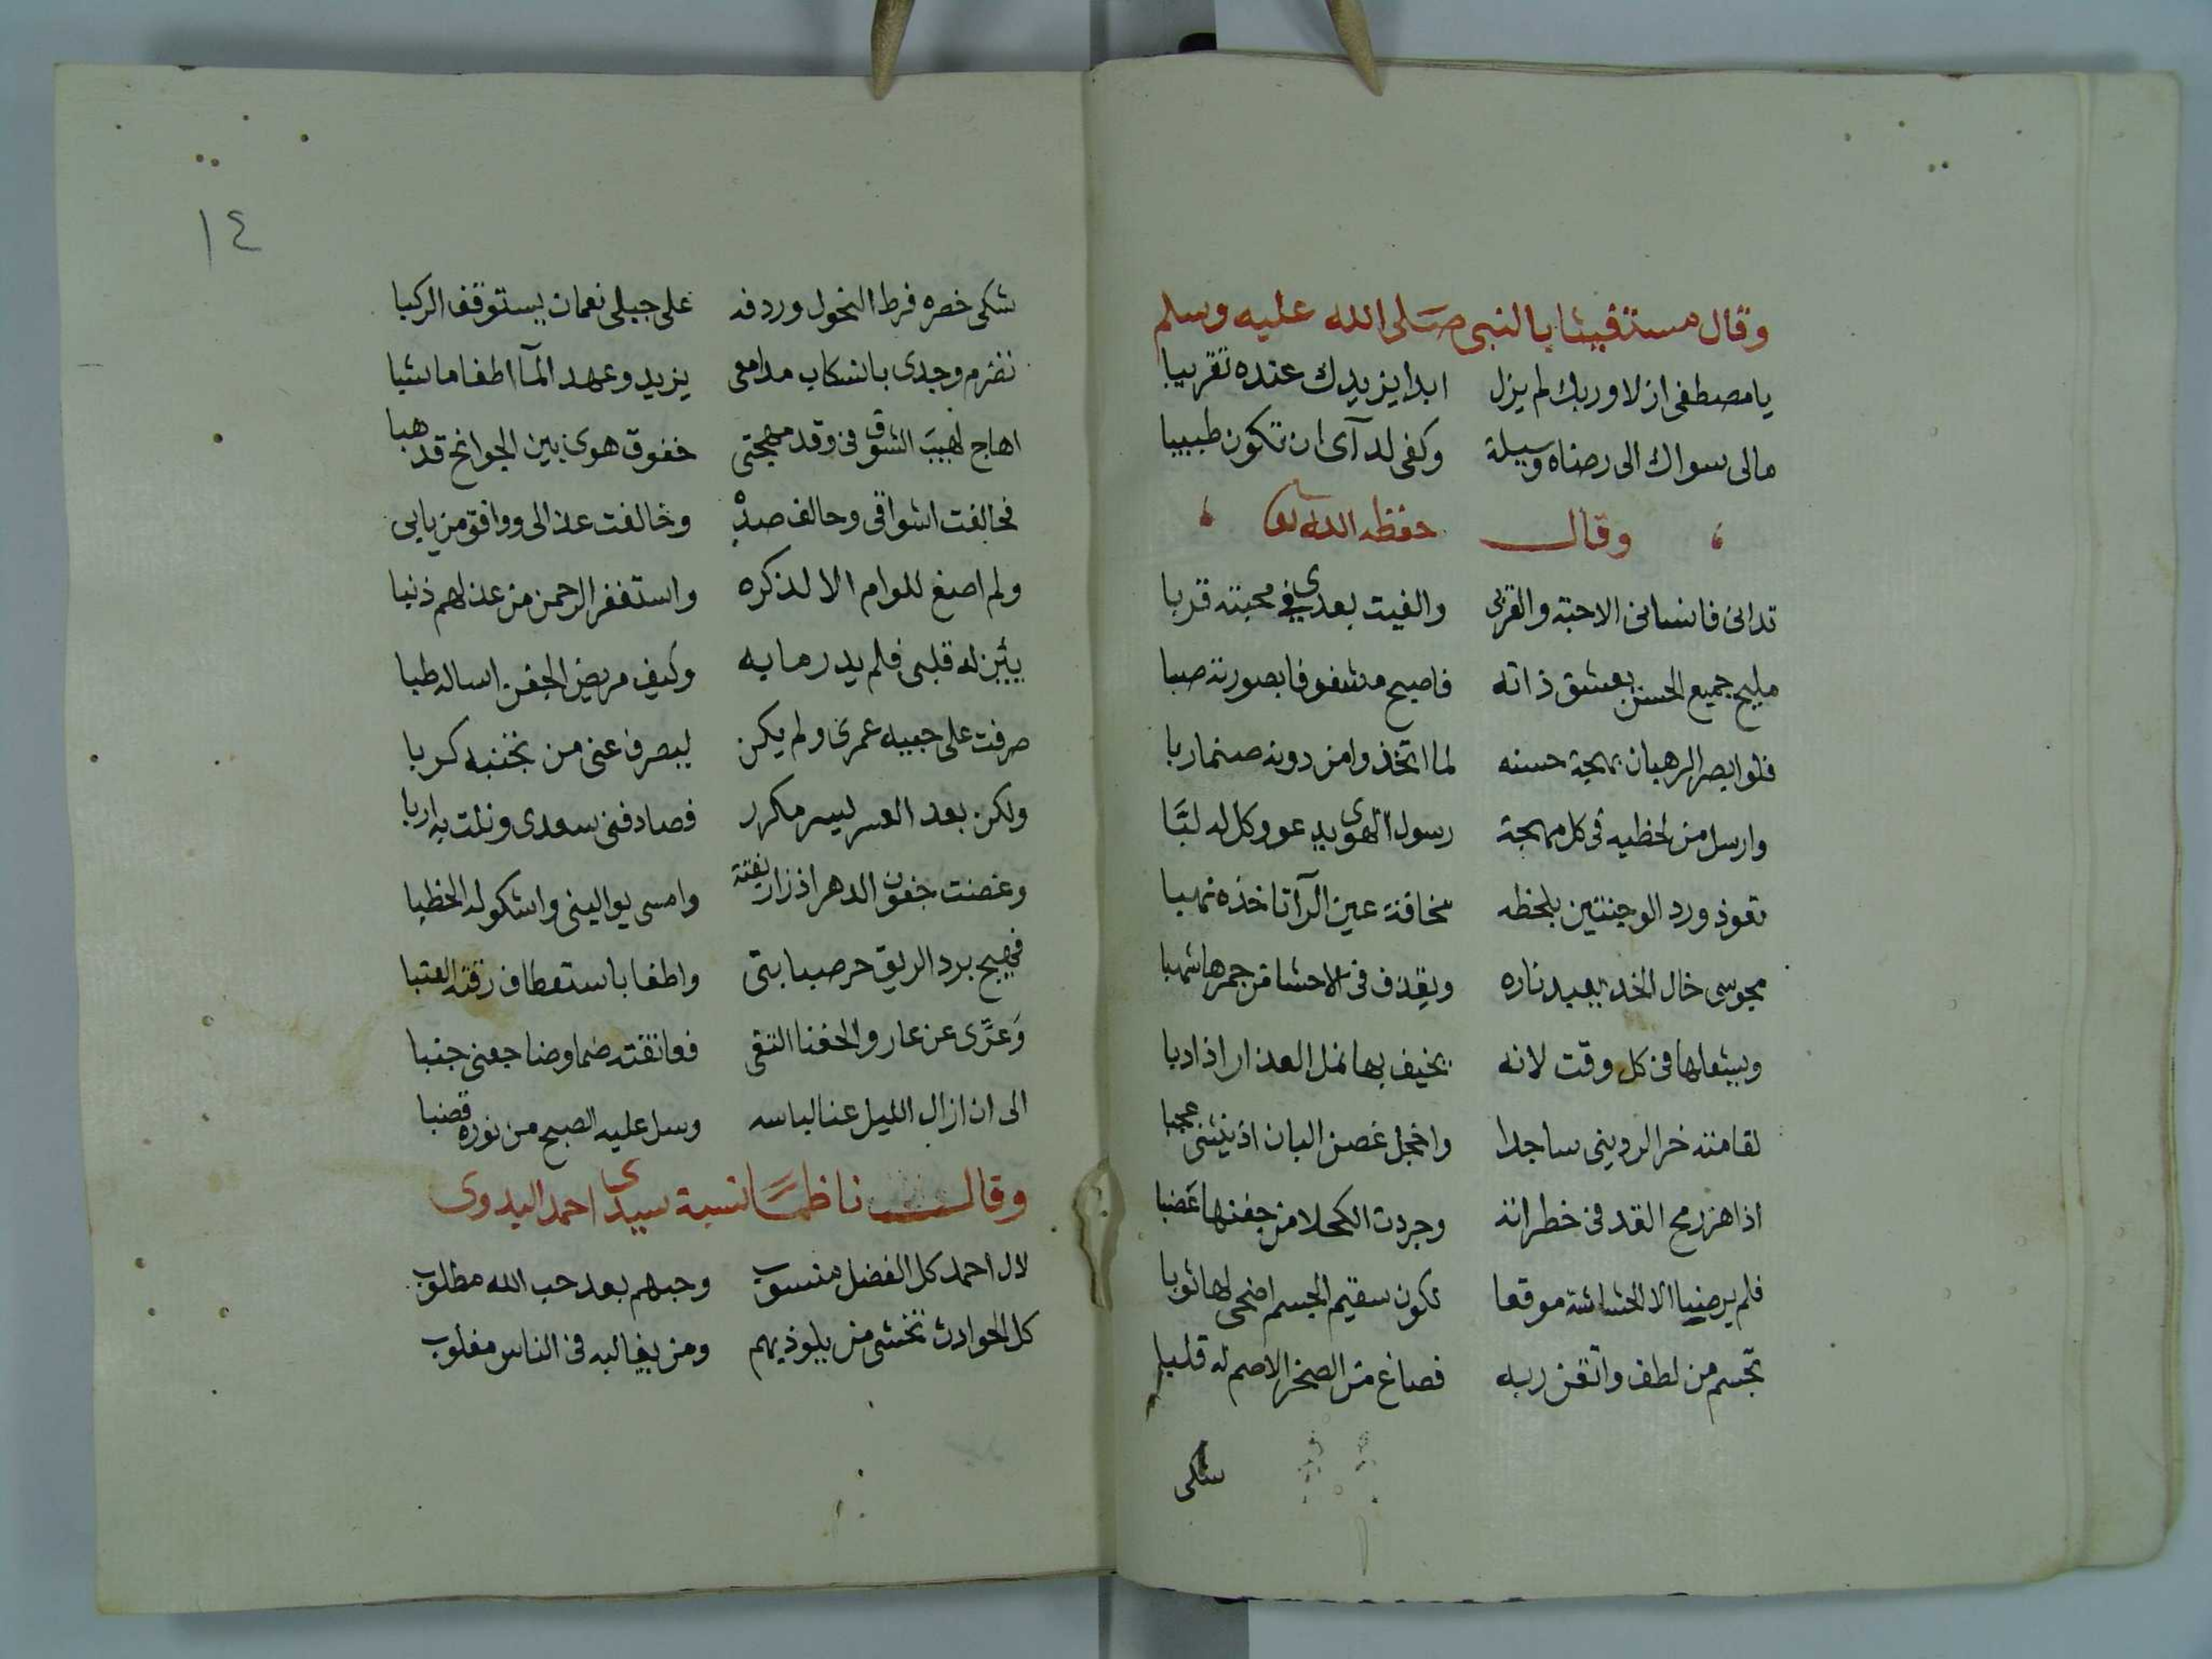 وقال مستغيثا بالنبى صلى الله عليه وسلم
يا مصطفى ازلا وربك لم يزل ابدا يزيدك عنده تقريبا
مالى سواك الى رضاه وسيلة وكفى لدآى ان تكون طبيبا
وقال حفظه الله تعا
تدانى فانسانى الاحبة والقربى والفيت بعدى فى محبته قربا
مليح جميع الحسن يعشق ذاته فاصبح مشغوفا بصورته صبا
فلو ابصر الرهبان بهجة حسنه لما اتخذوا من دونه صنما ربا
وارسل من لحظيه فى كل مهجة رسول الهوى يدعو وكل له لبَّا
تعوذ ورد الوجنتين بلحظه مخافة عين ان تاخذه نهبا
مجوسى خال الخد يعبد ناره ويقذف فى الاحشا من جمرها شهبا
ويشعلها فى كل وقت لانه يخيف بها نمل العذار اذا دبا
لقامته خر الردينى ساجدا واخجل غصن البان اذ ينثنى عجبا
اذا هز رمح القد فى خطراته وجردت الكحلا من جفنها عَضبا
فلم يرضيا الا الحشاشة موقعا لكون سقيم الجسم اضحى لها ثوبا
تجسم من لطف واتقن ربه فصاغ من الصخر الاصم له قلبا
شكى
١٤
شكى خصره فرط النحول وردفه على جبلى نعمان يستوقف الركبا
تضرم وجدى بانسكاب مدامعى يزيد وعهد المآ اطفا ما شبا
اهاج لهيبَ الشوق فى وقد مهجتى خفوق هوى بين الجوانح قد هبا
فحالفت اشواقى وحالف صده وخالفت عذالى ووافق من يابى
ولم اصغ للوام الا لذكره واستغفر الرحمن من عذلهم ذنبا
يئن له قلبى فلم يدر ما به وكيف مريض الجفن اساله طبا
صرفت على حبيه عمرى ولم يكن ليصرف عنى من تجنبه كربا
ولكن بعد العسر ليسر مكرر فصادفنى سعدى ونلت به اربا
وغضت جفون الدهر اذ زار بغتة وامسى يوالينى واشكو له الخطبا
فهيج برد الريق حر صبابتى واطفا باستعطاف رقته العتبا
وَعرَّى عن عار والحفنا التقى فعانقته ضما وضاجعنى جنبا
الى ان ازال الليل عنا لباسه وسل عليه الصبح من نوره قضبا
وقال ناظمًا نسبة سيدى احمد البدوى
لال احمد كل الفضل منسوب وحبهم بعد حب الله مطلوب
كل الحوادث تخشى من يلوذ بهم ومن يغالبه فى الناس مغلوب